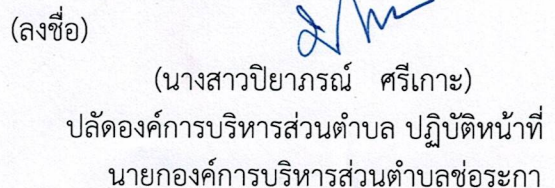 (ลงชื่อ)
(นางสาวปิยาภรณ์ ศรีเกาะ)
ปลัดองค์การบริหารส่วนตำบล ปฏิบัติหน้าที่
นายกองค์การบริหารส่วนตำบลช่อระกา